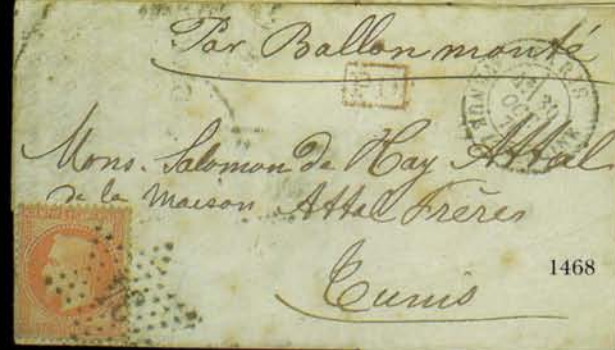 Par Ballon monté
PD
PARIS
Mons. Salomon de Hay Attal
de la Maison Attal Frères
1468
Tunis